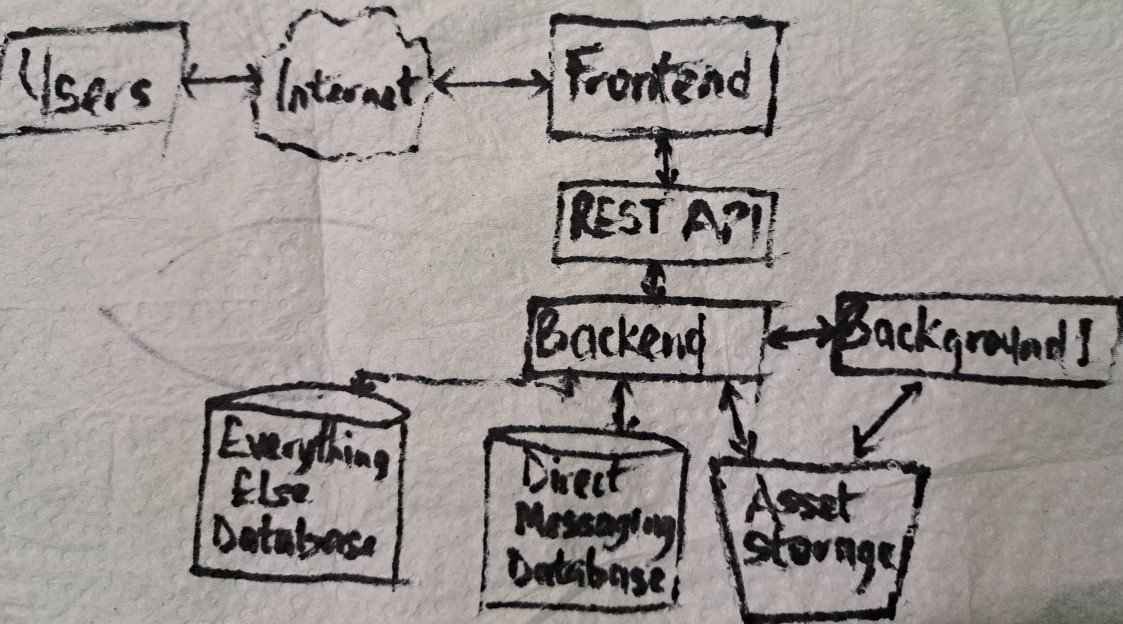 Users
Internet
Frontend
REST API
Backend
Background J
Everything
Else
Database
Direct
Messaging
Database
Asset
Storage